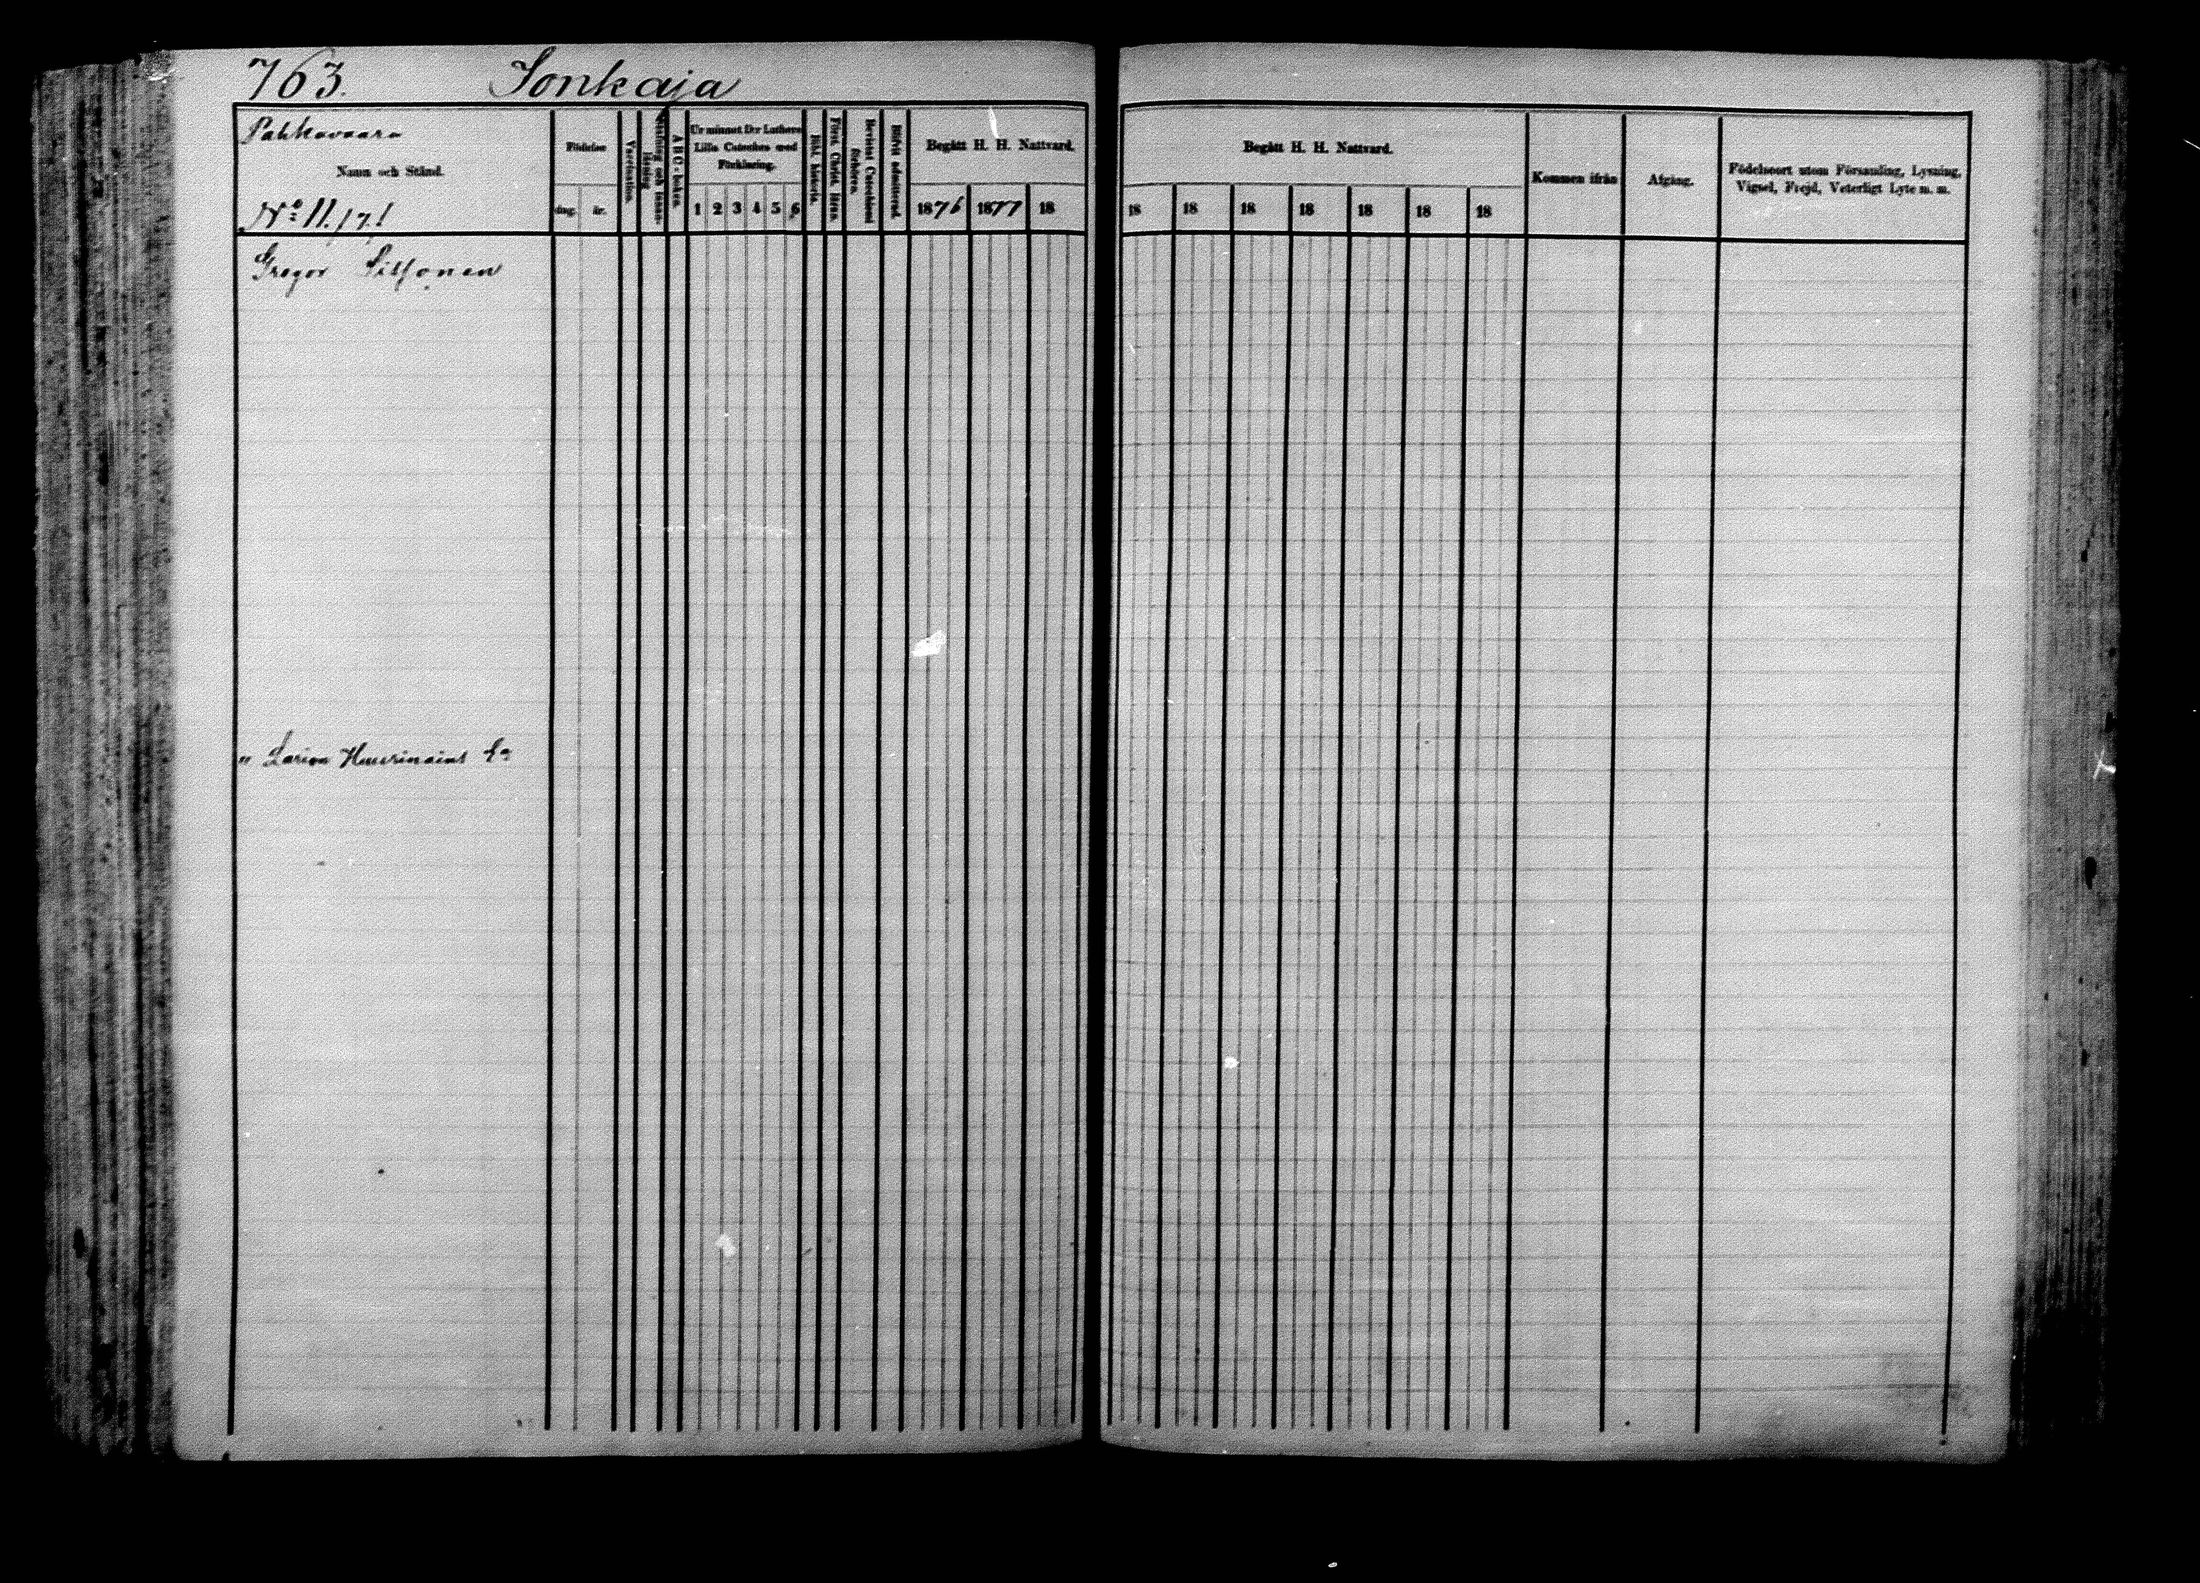 763. Sonkaja
Pahkavaara
Namn och Stånd.
No 11. /7.1
Födelse
dag. år.
Vaccination.
A B C-boken.
Ur minnet D:r Luthers
Lilla Cateches med
Förklaring.
1 2 3 4 5 6
Bibl. historia.
Först. Christ. läran.
Bevistat Catechismi
förhören.
Blifvit admitterad.
Begått H. H. Nattvard.
1876 1877 18
Begått H. H. Nattvard.
18 18 18 18 18 18 18
Kommen ifrån
Afgång.
Födelseort utom Församling, Lysning,
Vigsel, Frejd, Veterligt Lyte m. m.
Gregor Sissonen
" Larion